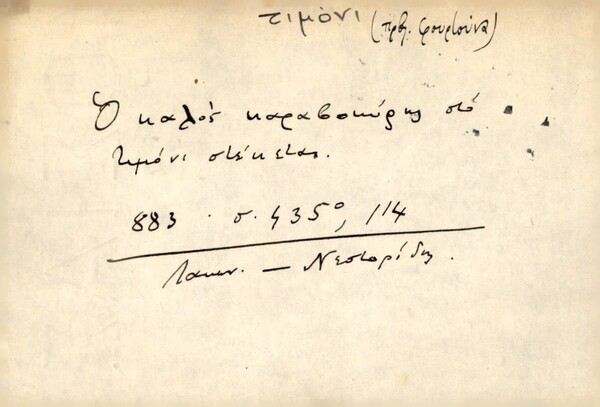 τιμόνι (πρβ. φουρτούνα)
Ὁ καλὸς καραβοκύρης στὸ
τιμόνι στέκεται.
883 . σ. 435°, 114
Λακων. — Νεστορίδης.